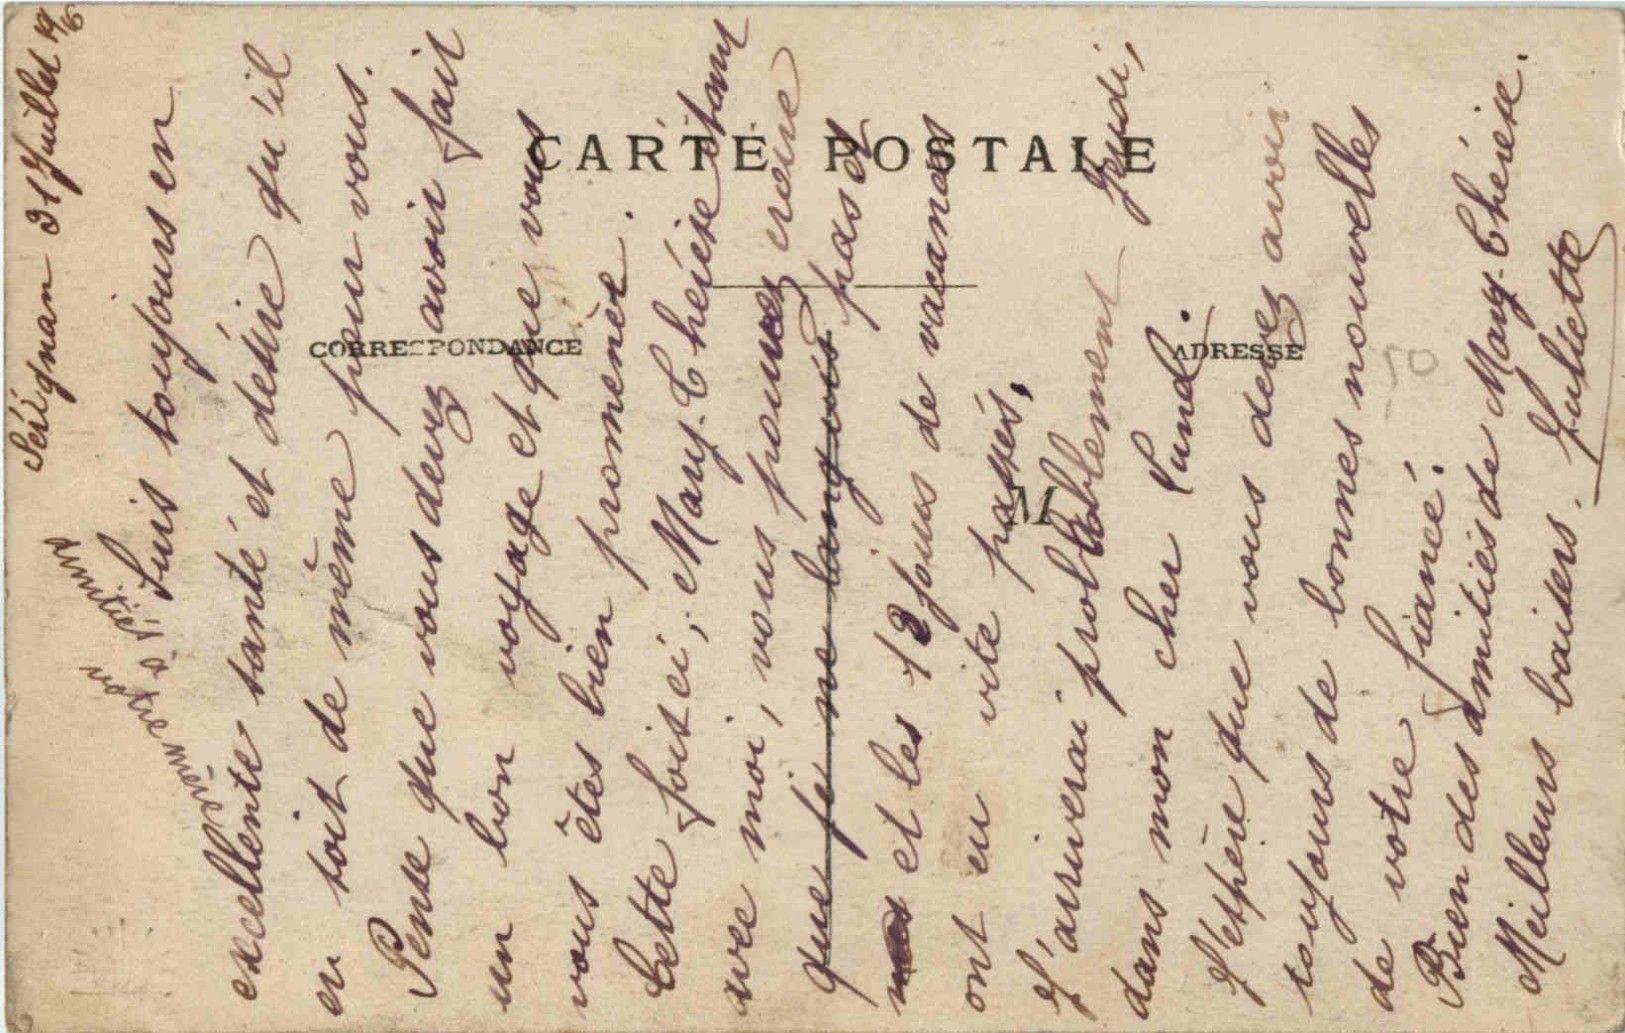 CARTE POSTALE
CORRESPONDANCE
ADRESSE
M
Sérignan 31 Juillet 19
16
Suis toujours en
excellente santé et désire qu'il
en soit de même pour vous.
Pense que vous devez avoir fait
un bon voyage et que vous
vous êtes bien promenée.
Cette fois ci, Mary-Thérèse étant
avec moi, vous pouvez croire
que je ne languis pas et
et les 12 jours de vacances
ont eu vite passés.
J'arriverai probablement Jeudi,
dans mon cher Lunel.
J'espère que vous devez avoir
toujours de bonnes nouvelles
de votre fiancé.
Bien des amitiés de Mary-Thérèse.
Meilleurs baisers. Juliette